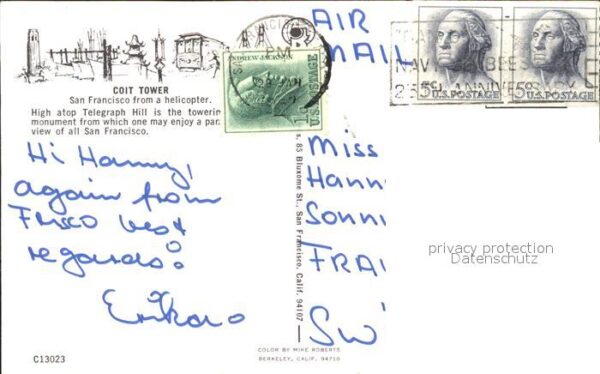 COIT TOWER
San Francisco from a helicopter.
High atop Telegraph Hill is the towerin
monument from which one may enjoy a pan
view of all San Francisco.
Hi Hanny,
again from
Frisco best
regards!
C13023
COLOR BY MIKE ROBERTS
BERKELEY, CALIF. 94710
85 Bluxome St., San Francisco, Calif. 94107
ANDREW JACKSON
1c
U.S. POSTAGE
PM
AIR
MAIL
5c U.S. POSTAGE
5c U.S. POSTAGE
NAV
BEES
25TH ANNIVERS
Miss
Hann
Sonn
FRA
SW
privacy protection
Datenschutz